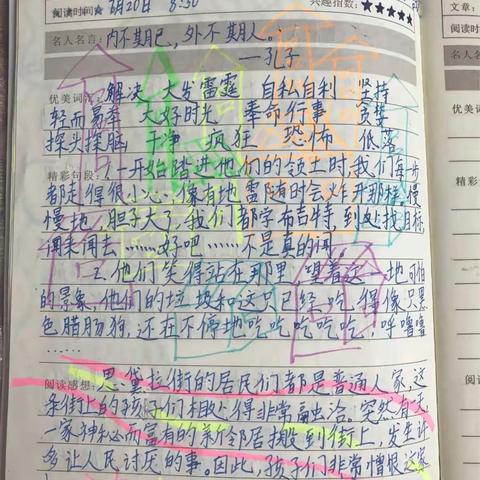 阅读时间★ 8月20日 8:30 兴趣指数:★★★★★
名人名言:内不期己,外不期人。
——孔子
优美词汇:解决 大发雷霆 自私自利 坚持
轻而易举 大好时光 奉命行事 贪婪
探头探脑 干净 疯狂 恐怖 低落
精彩句段:1.一开始踏进他们的领土时,我们每步
都走得很小心,像有地雷随时会炸开那样,慢
慢地,胆子大了,我们都学布吉特,到处找目标
闻来闻去……好吧……不是真的闻。
2.他们笑得站在那里,望着这一地可怕
的景象,他们的垃圾和这只已经吃得像只黑
色腊肠狗,还在不停地吃吃吃吃吃,呼噜噜
……
阅读感想:思黛拉街的居民们都是普通人家,这
条街上的孩子们相处得非常融洽。突然有一天
一家神秘而富有的新邻居搬到街上,发生许
多让人民讨厌的事。因此,孩子们非常憎恨这家
文章:
阅读时
名人名
优美词
精彩